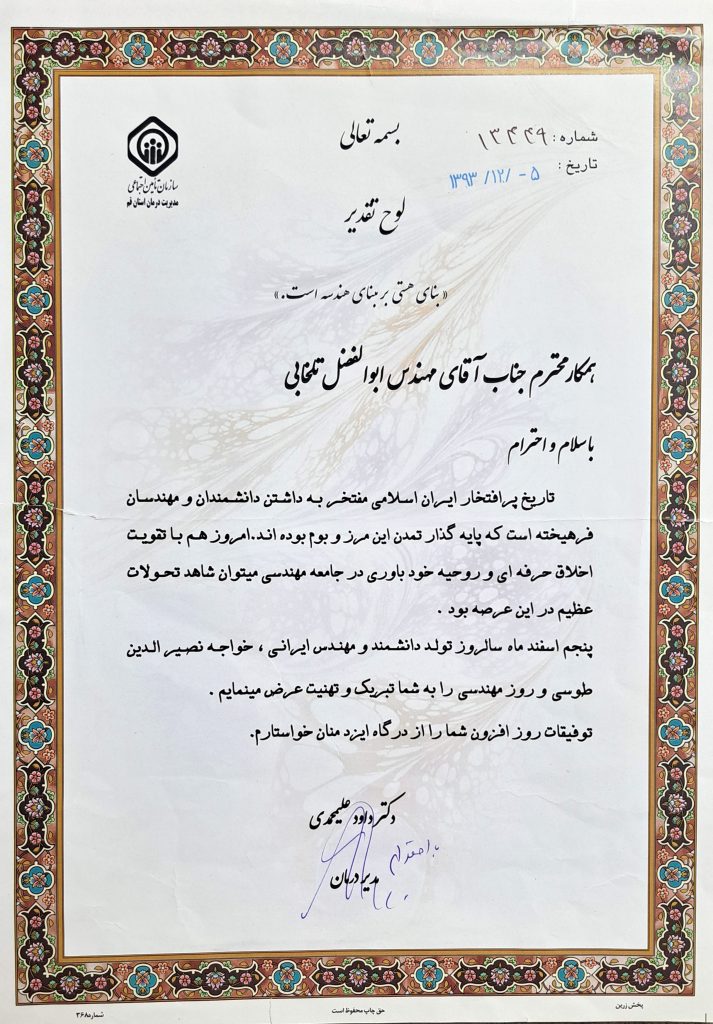 بسمه تعالی
شماره : ۱۳۴۴۹
تاریخ : ۵ - /۱۲/ ۱۳۹۳
سازمان تأمین اجتماعی
مدیریت درمان استان قم
لوح تقدیر
« بنای هستی بر مبنای هندسه است. »
همکار محترم جناب آقای مهندس ابوالفضل تلخابی
با سلام و احترام
تاریخ پرافتخار ایران اسلامی مفتخر به داشتن دانشمندان و مهندسان
فرهیخته است که پایه گذار تمدن این مرز و بوم بوده اند.امروز هم با تقویت
اخلاق حرفه ای و روحیه خود باوری در جامعه مهندسی میتوان شاهد تحولات
عظیم در این عرصه بود .
پنجم اسفند ماه سالروز تولد دانشمند و مهندس ایرانی ، خواجه نصیر الدین
طوسی و روز مهندسی را به شما تبریک و تهنیت عرض مینمایم .
توفیقات روز افزون شما را از درگاه ایزد منان خواستارم.
دکتر داود علیمحمدی
با احترام
مدیر درمان
پخش زرین
حق چاپ محفوظ است
شماره ۳۶۸